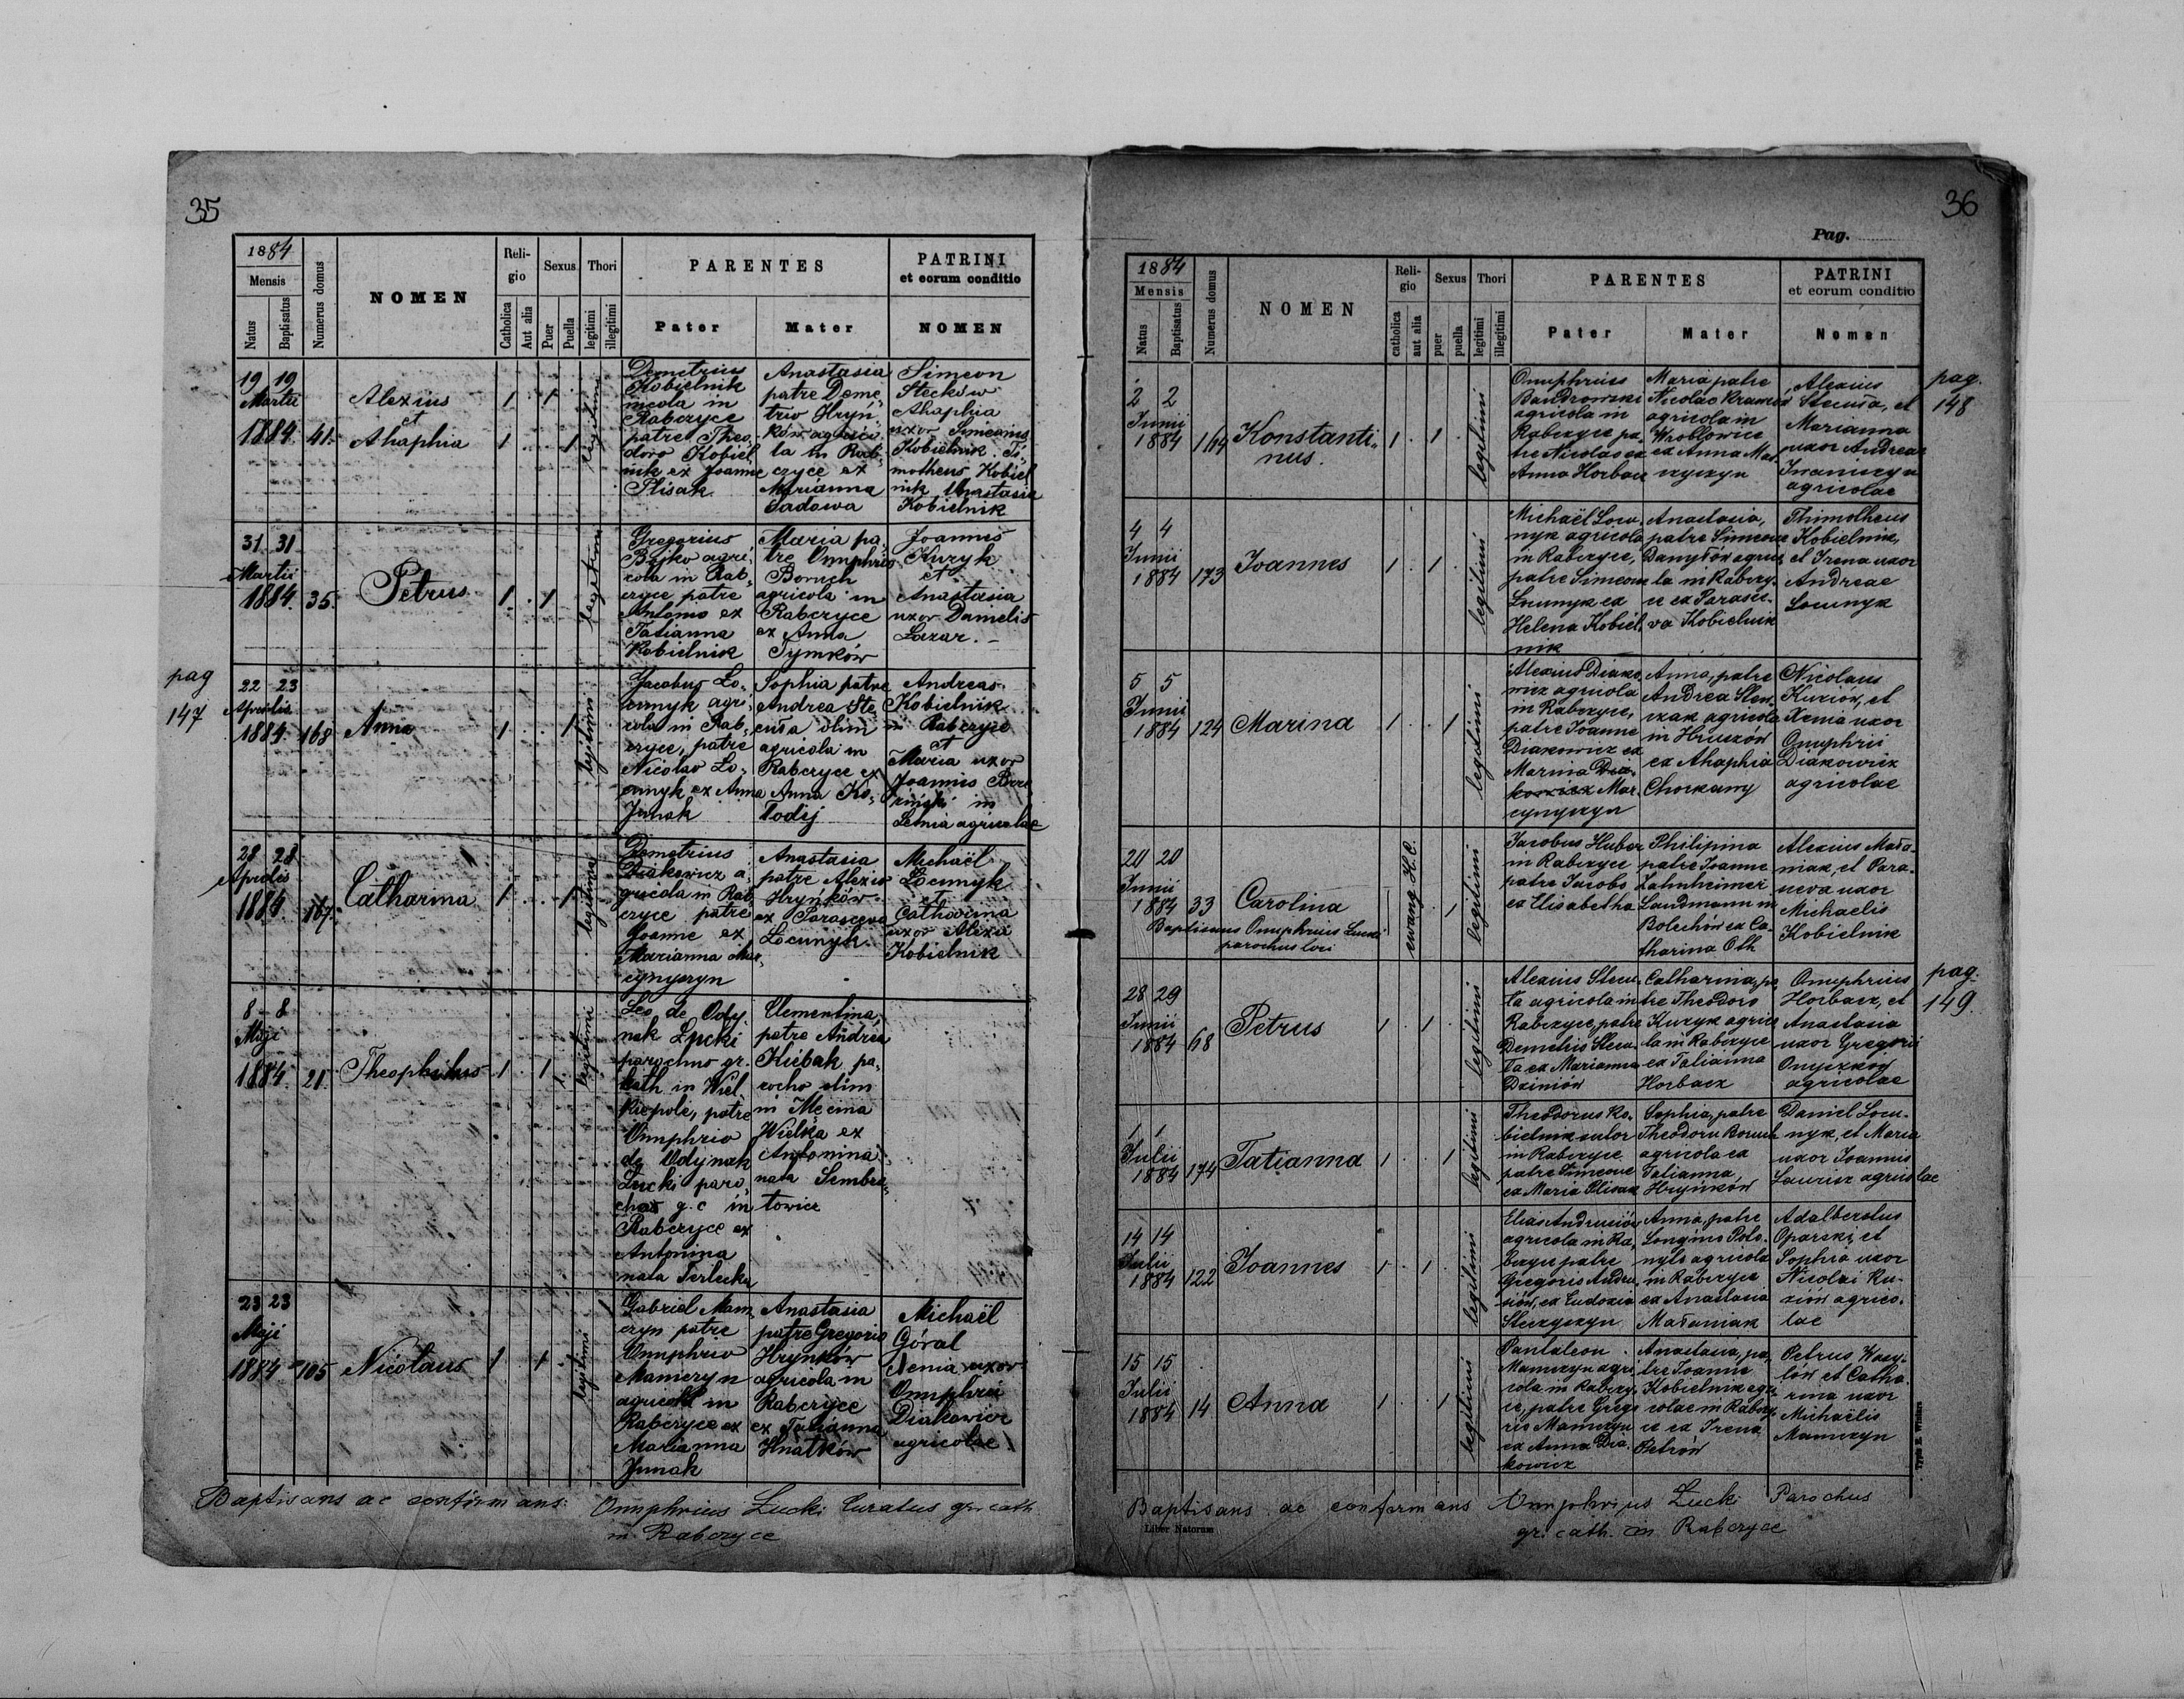 35
1884
Mensis
Natus
Baptisatus
Numerus domus
NOMEN
Reli-
gio
Catholica
Aut alia
Sexus
Puer
Puella
Thori
legitimi
illegitimi
PARENTES
Pater
Mater
PATRINI
et eorum conditio
NOMEN
19 19
Martii
1884 41.
Alexius
et
Ahaphia
1 . 1 .
1 . . 1
legitimi
Demetrius
Kobielnik
incola in
Rabczyce
patre Theo,,
doro Kobiel
nik ex Joanne
Plisak
Anastasia
patre Deme,,
trio Hryń
ków agrico,,
la in Rab,,
czyce ex
Marianna
Sadowa
Simeon
Stecków
Ahaphia
uxor Simeonis
Kobielnik. Ti,,
motheus Kobiel
nik Anastasia
Kobielnik
31 31
Martii
1884. 35.
Petrus
1 . 1 .
legitimi
Gregorius
Bojko agri,,
cola in Rab,,
czyce patre
Antonio ex
Tatianna
Kobielnik
Maria pa,,
tre Onuphrio
Boruch
agricola in
Rabczyce
ex Anna
Tymków
Joannes
Kuzyk
et
Anastasia
uxor Danielis
Lazar. –
pag
147
22 23
Aprilis
1884. 168
Anna
1 . . 1
legitimi
Jacobus Lo,,
cunyk agri,,
cola in Rab,,
czyce, patre
Nicolao Lo,,
cunyk ex Anna
Junak
Sophia patre
Andrea Ste
cuła olim
agricola in
Rabczyce ex
Anna Ko,,
łodij
Andreas
Kobielnik
in Rabczyce
et
Maria uxor
Joannis
in
Letnia agricolae
28 28
Aprilis
1884. 167.
Catharina
1 . . 1
legitimi
Demetrius
Diakowicz a,,
gricola in Rab,,
czyce patre
Joanne ex
Marianna Mar,,
cynyszyn
Anastasia
patre Alexio
Hryńków
ex Parasceva
Locunyk
Michaël
Locunyk
et
Catharina
uxor Alexii
Kobielnik
8 8
Maji
1884. 21.
Theophilus
1 . 1 .
legitimi
Leo de Ody,,
nak Łucki
parochus gr.
cath in Wiel,,
kiepole, patre
Onuphrio
de Odynak
Łucki paro,,
chus g. c in
Rabczyce ex
Antonina
nata Terlecka
Clementina,
patre Andrea
Kiebak pa,,
rocho olim
in Męcina
Wielka ex
Antonina
nata Sembra,,
towicz
23 23
Maji
1884 105
Nicolaus
1 . 1 .
legitimi
Gabriel Mam,,
czyn patre
Onuphrio
Mamczyn
agricola in
Rabczyce ex
Marianna
Junak
Anastasia
patre Gregorio
Hrynków
agricola in
Rabczyce
ex Tatianna
Hnatków
Michaël
Góral
Xenia uxor
Onuphrii
Diakowicz
agricolae
Baptisans ac confirmans: Onuphrius Łucki Curatus gr. cath
in Rabczyce
36
Pag.
1884
Mensis
Natus
Baptisatus
Numerus domus
NOMEN
Reli-
gio
catholica
aut alia
Sexus
puer
puella
Thori
legitimi
illegitimi
PARENTES
Pater
Mater
PATRINI
et eorum conditio
Nomen
pag.
148
2 2
Junii
1884 164
Konstanti,,
nus.
1 . 1 .
legitimi
Onuphrius
Bandrowski
agricola in
Rabczyce pa,,
tre Nicolao ex
Anna Horbacz
Maria patre
Nicolao
agricola in
Wroblowice
ex Anna
Alexius
Stecuła, et
Marianna
uxor Andreae
Iwaniszyn
agricolae
4 4
Junii
1884 173
Joannes
1 . 1 .
legitimi
Michaël Locu,,
nyk agricola
in Rabczyce,
patre Simeone
Locunyk ex
Helena Kobiel,,
nik
Anastasia,
patre Simeone
Danyłów agrico,,
la in Rabczy,,
ce ex Parasce,,
va Kobielnik
Thimotheus
Kobielnik,
et Irena uxor
Andreae
Locunyk
5 5
Junii
1884 124
Marina
1 . . 1
legitimi
Alexius Diako,,
wicz agricola
in Rabczyce,
patre Joanne
Diakowicz ex
Marina Dia,,
kowicz Mar,,
cynyszyn
Anna, patre
Andrea Stan,,
czak agricola
in Hruszów
ex Ahaphia
Chorkawy
Nicolaus
Kuziów, et
Xenia uxor
Onuphrii
Diakowicz
agricolae
20 20
Junii
1884 33
Carolina
Baptisans Onuphrius Łucki
parochus loci
ewang H.C.
. 1
legitimi
Jacobus Huber
in Rabczyce
patre Jacobo
ex Elisabetha
Philipina
patre Joanne
Zahnheimer
Landmann in
Bolechów ex Ca,,
tharina Oth
Alexius Mała,,
niak, et Para,,
sceva uxor
Michaelis
Kobielnik
pag.
149
28 29
Junii
1884 68
Petrus
1 . 1 .
legitimi
Alexius Stecu,,
ła agricola in
Rabczyce, patre
Demetrio Stecu,,
ła ex Marianna
Dziniów
Catharina, pa,,
tre Theodoro
Kuzyk agrico,,
la in Rabczyce
ex Tatianna
Horbacz
Onuphrius
Horbacz, et
Anastasia
uxor Gregorii
Onyszków
agricolae
1 1
Julii
1884 174
Tatianna
1 . . 1
legitimi
Theodorus Ko,,
bielnik sutor
in Rabczyce
patre Simeone
ex Maria Plisak
Sophia, patre
Theodoru Boruch
agricola ex
Tatianna,
Hryńków
Daniel Locu,,
nyk, et Maria
uxor Joannis
Laurisz agricolae
14 14
Julii
1884 122
Joannes
1 . 1 .
legitimi
Elias Andrusiów
agricola in Ra,,
bczyce patre
Gregorio Andru,,
siów, ex Eudoxia
Steczyszyn
Anna, patre
Longino Poło,,
nyło agricola
in Rabczyce
ex Anastasia
Małaniak
Adalbertus
Oparski, et
Sophia uxor
Nicolai Ku,,
ziów agrico,,
lae
15 15
Julii
1884 14
Anna
1 . . 1
legitimi
Pantaleon
Mamczyn agri,,
cola in Rabczy,,
ce, patre Grego,,
rio Mamczyn
ex Anna Dia,,
kowicz
Anastasia, pa,,
tre Joanne
Kobielnik agri,,
colae in Rabczy,,
ce ex Irena
Petrów
Petrus Wasy,,
lów et Catha,,
rina uxor
Michaëlis
Mamczyn
Baptisans ac confirmans Onuphrius Łucki Parochus
gr. cath. in Rabczyce
Liber Natorum
Typis E. Winiarz